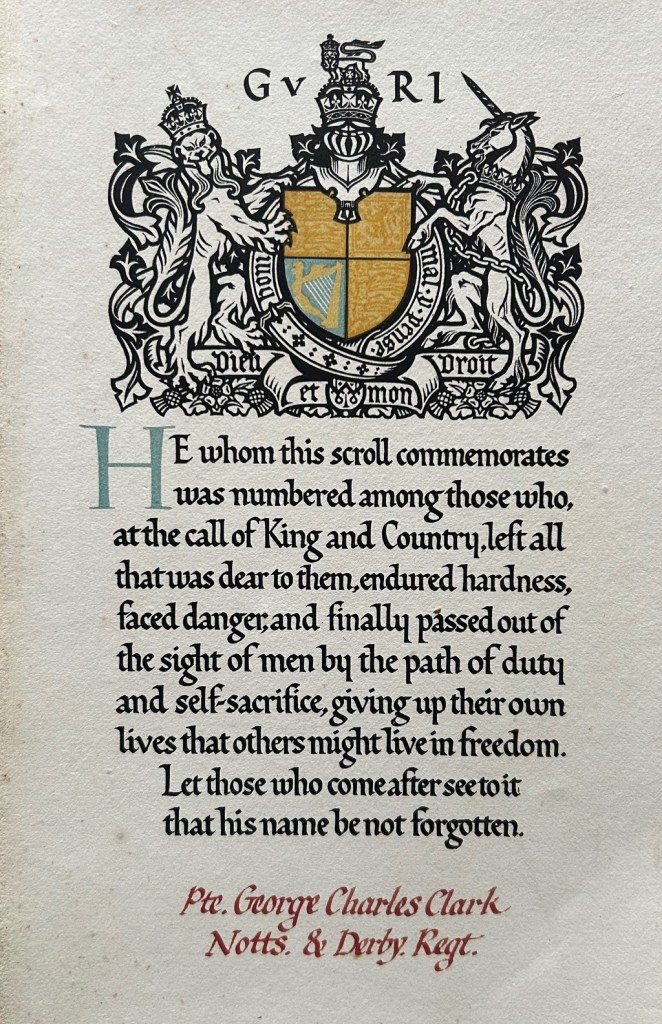 G V R I
honi mal·y·pense
Dieu Droit
et mon
HE whom this scroll commemorates
was numbered among those who,
at the call of King and Country, left all
that was dear to them, endured hardness,
faced danger, and finally passed out of
the sight of men by the path of duty
and self-sacrifice, giving up their own
lives that others might live in freedom.
Let those who come after see to it
that his name be not forgotten.
Pte. George Charles Clark
Notts. & Derby. Regt.